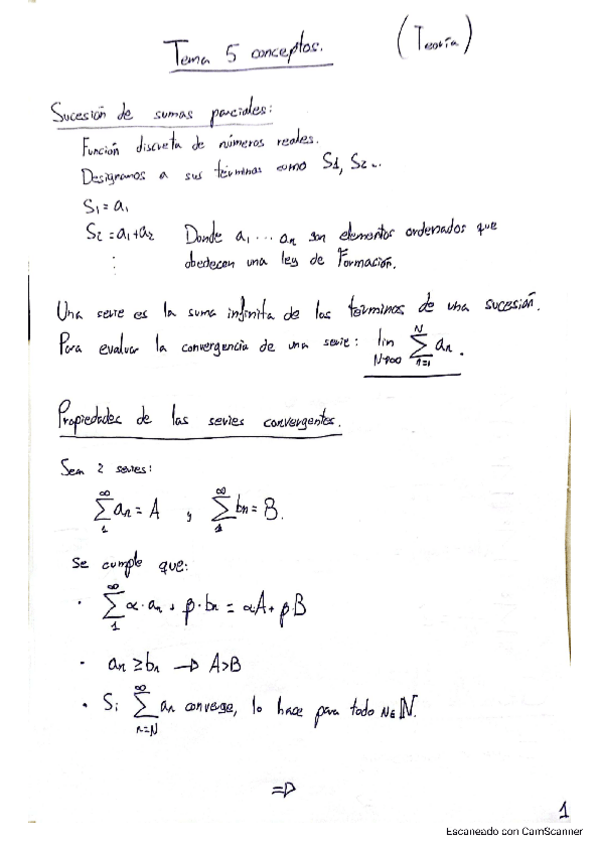 Tema 5 conceptos. (Teoría)
Sucesión de sumas parciales:
Función discreta de números reales.
Designamos a sus términos como S1, S2...
S1 = a1
S2 = a1+a2 Donde a1 ... an son elementos ordenados que
⋮ obedecen una ley de Formación.
Una serie es la suma infinita de los términos de una sucesión.
Para evaluar la convergencia de una serie: lim N→∞ ∑_{n=1}^{N} an.
Propiedades de las series convergentes.
Sean 2 series:
∑_{1}^{∞} an = A , ∑_{1}^{∞} bn = B.
Se cumple que:
· ∑_{1}^{∞} α·an + β·bn = αA + βB
· an ≥ bn → A>B
· Si ∑_{n=N}^{∞} an converge, lo hace para todo N∈ℕ.
⇒
1
Escaneado con CamScanner